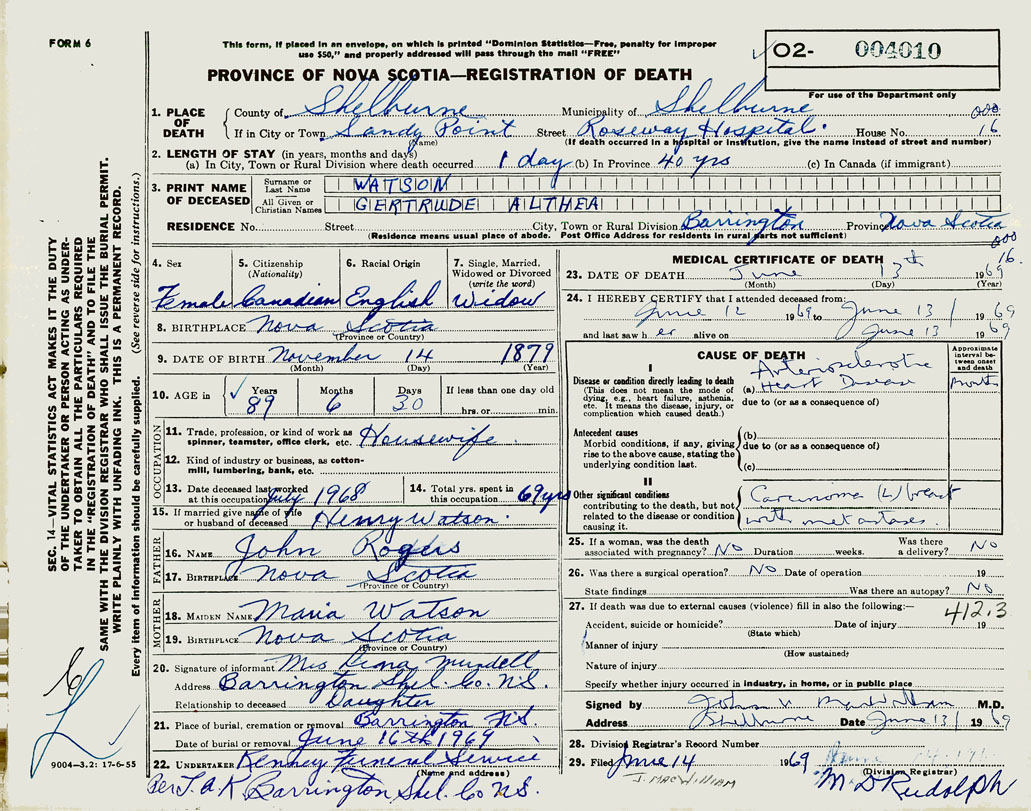 FORM 6
This form, if placed in an envelope, on which is printed "Dominion Statistics—Free, penalty for improper
use $50," and properly addressed will pass through the mail "FREE"
PROVINCE OF NOVA SCOTIA—REGISTRATION OF DEATH
02- 004010
For use of the Department only
1. PLACE OF DEATH County of Shelburne Municipality of Shelburne 000
If in City or Town Sandy Point Street Roseway Hospital. House No. 16
(Name) (If death occurred in a hospital or institution, give the name instead of street and number)
2. LENGTH OF STAY (in years, months and days)
(a) In City, Town or Rural Division where death occurred 1 day (b) In Province 40 yrs (c) In Canada (if immigrant)
3. PRINT NAME OF DECEASED Surname or Last Name WATSON
All Given or Christian Names GERTRUDE ALTHEA
RESIDENCE No. Street City, Town or Rural Division Barrington Province Nova Scotia
(Residence means usual place of abode. Post Office Address for residents in rural parts not sufficient)
000
16.
4. Sex Female
5. Citizenship (Nationality) Canadian
6. Racial Origin English
7. Single, Married, Widowed or Divorced (write the word) Widow
8. BIRTHPLACE Nova Scotia
(Province or Country)
9. DATE OF BIRTH November 14 1879
(Month) (Day) (Year)
10. AGE in Years 89 Months 6 Days 30 If less than one day old hrs. or min.
OCCUPATION
11. Trade, profession, or kind of work as spinner, teamster, office clerk, etc. Housewife.
12. Kind of industry or business, as cotton-mill, lumbering, bank, etc.
13. Date deceased last worked at this occupation July 1968
14. Total yrs. spent in this occupation 69 yrs
15. If married give name of wife or husband of deceased Henry Watson.
FATHER
16. NAME John Rogers
17. BIRTHPLACE Nova Scotia
(Province or Country)
MOTHER
18. MAIDEN NAME Maria Watson
19. BIRTHPLACE Nova Scotia
(Province or Country)
20. Signature of informant Mrs Mundell
Address Barrington Shel. Co. N.S.
Relationship to deceased Daughter
21. Place of burial, cremation or removal Barrington N.S.
Date of burial or removal June 16th 1969
22. UNDERTAKER Kenney Funeral Service
(Name and address)
Per T.A.K. Barrington Shel. Co N.S.
MEDICAL CERTIFICATE OF DEATH
23. DATE OF DEATH June 13th 1969
(Month) (Day) (Year)
24. I HEREBY CERTIFY that I attended deceased from:
June 12 1969 to June 13 1969
and last saw her alive on June 13 1969
CAUSE OF DEATH
Approximate interval between onset and death
I
Disease or condition directly leading to death
(This does not mean the mode of dying, e.g., heart failure, asthenia, etc. It means the disease, injury, or complication which caused death.)
(a) Arteriosclerotic Heart Disease
due to (or as a consequence of)
Antecedent causes
Morbid conditions, if any, giving rise to the above cause, stating the underlying condition last.
(b)
due to (or as a consequence of)
(c)
II
Other significant conditions contributing to the death, but not related to the disease or condition causing it.
Carcinoma (L) breast
with metastases.
25. If a woman, was the death associated with pregnancy? NO Duration weeks. Was there a delivery? NO
26. Was there a surgical operation? NO Date of operation 19
State findings Was there an autopsy? NO
27. If death was due to external causes (violence) fill in also the following:—
412.3
Accident, suicide or homicide? Date of injury 19
(State which)
Manner of injury
(How sustained)
Nature of injury
Specify whether injury occurred in industry, in home, or in public place
Signed by M.D.
Address Shelburne Date June 13/ 1969
28. Division Registrar's Record Number
29. Filed June 14 1969
(Division Registrar)
J. MACWILLIAM
M D Rudolph
SEC. 14—VITAL STATISTICS ACT MAKES IT THE DUTY
OF THE UNDERTAKER OR PERSON ACTING AS UNDER-
TAKER TO OBTAIN ALL THE PARTICULARS REQUIRED
IN THE "REGISTRATION OF DEATH" AND TO FILE THE
SAME WITH THE DIVISION REGISTRAR WHO SHALL ISSUE THE BURIAL PERMIT.
WRITE PLAINLY WITH UNFADING INK. THIS IS A PERMANENT RECORD.
Every item of information should be carefully supplied. (See reverse side for instructions.)
9004—3.2: 17-6-55